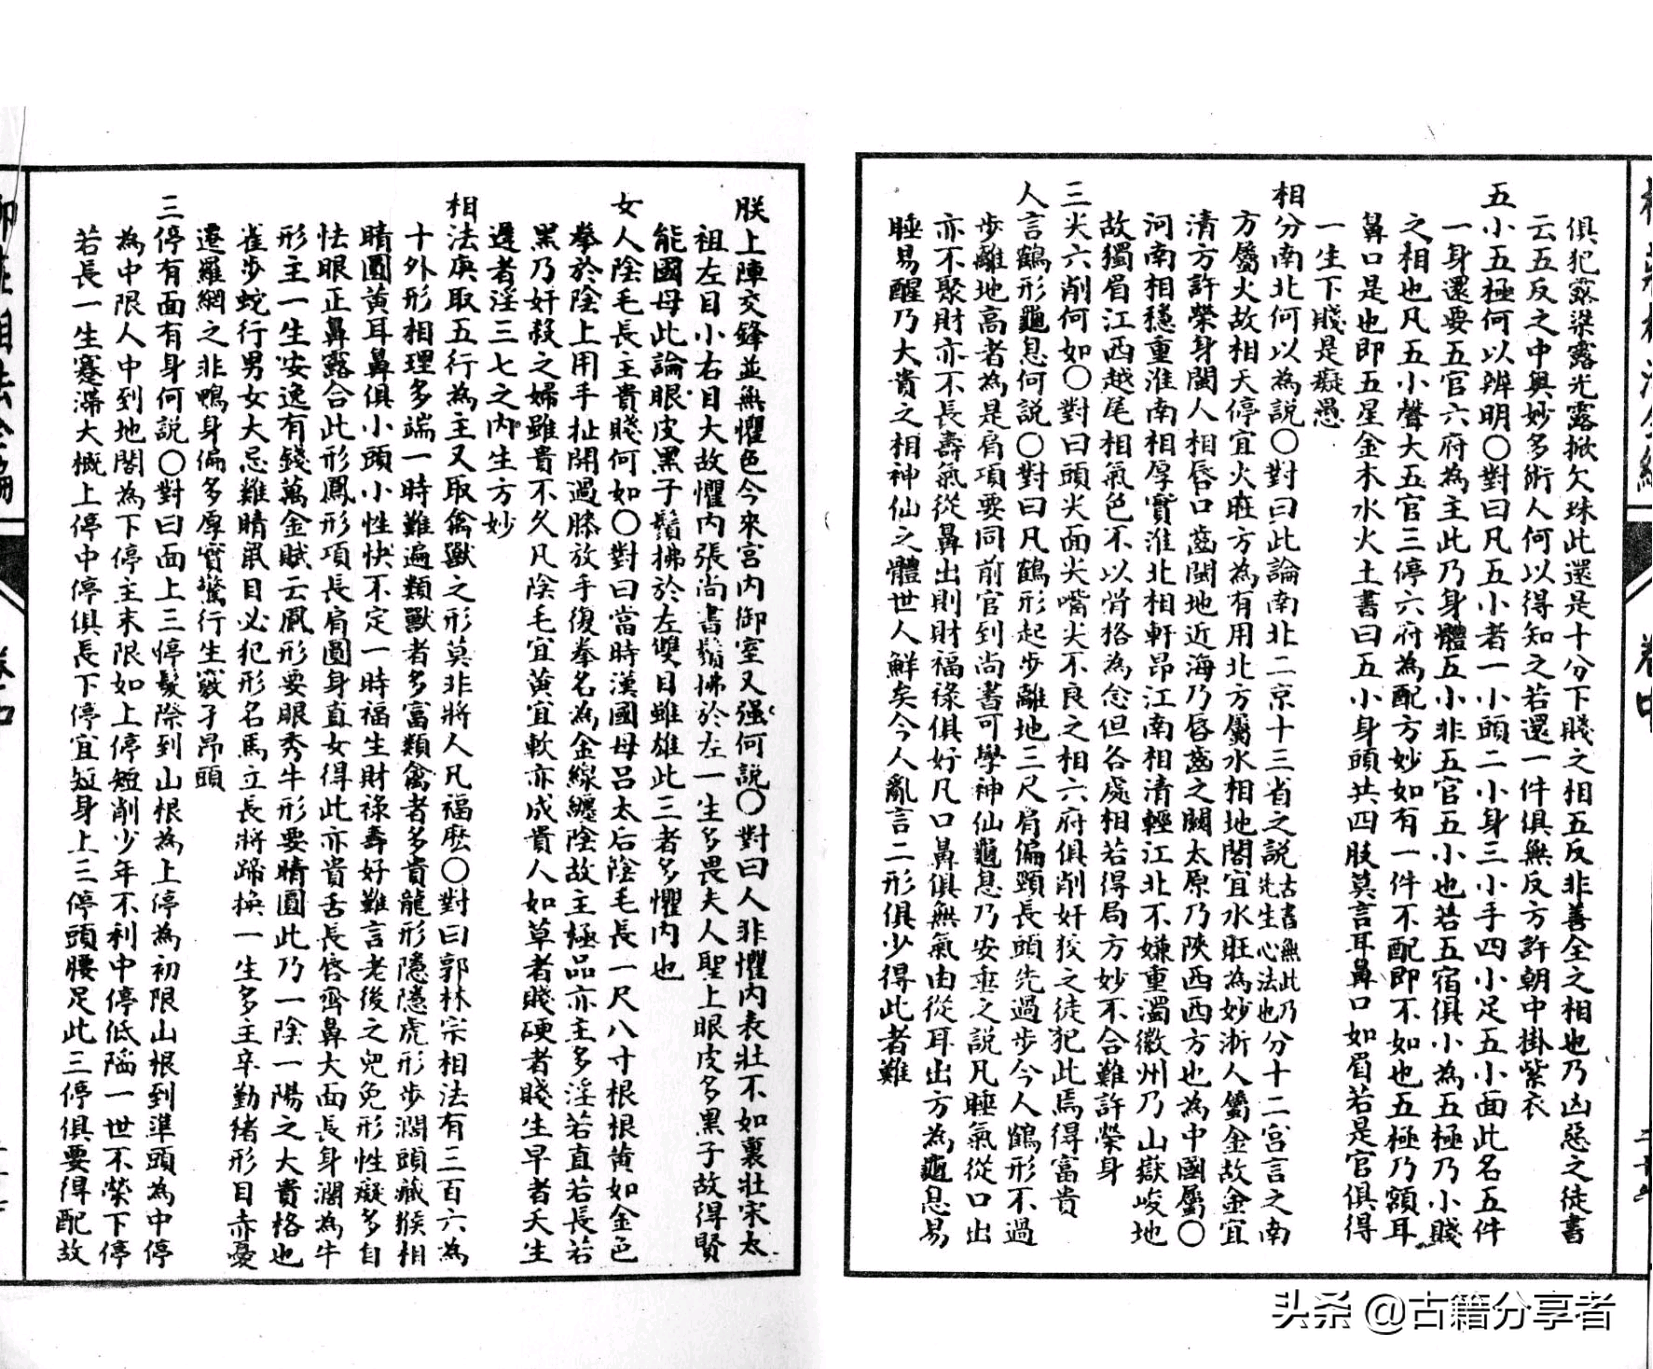 俱犯露梁露光露掀欠珠此還是十分下賤之相五反非善全之相也乃凶惡之徒書
云五反之中奥妙多術人何以得知之若還一件俱無反方許朝中掛紫衣
五小五極何以辨明〇對曰凡五小者一小頭二小身三小手四小足五小面此名五件
一身還要五官六府為主此乃身體五小非五官五小也若五宿俱小為五極乃小賤
之相也凡五小聲大五官三停六府為配方妙如有一件不配即不如也五極乃額耳
鼻口是也即五星金木水火土書曰五小身頭共四肢莫言耳鼻口如眉若是官俱得
一生下賤是癡愚
相分南北何以為說〇對曰此論南北二京十三省之説古書無此乃先生心法也分十二宫言之南
方屬火故相天停宜火旺方為有用北方屬水相地閣宜水旺為妙淅人屬金故金宜
清方許榮身閩人相唇口齒閩地近海乃唇齒之關太原乃陝西西方也為中國屬〇
河南相穩重淮南相厚實淮北相軒昂江南相清輕江北不嫌重濁徽州乃山嶽峻地
故獨眉江西越尾相氣色不以骨格為念但各處相若得局方妙不合難許榮身
三尖六削何如〇對曰頭尖面尖嘴尖不良之相六府俱削奸狡之徒犯此焉得富貴
人言鶴形龜息何説〇對曰凡鶴形起步離地三尺肩偏頸長頭先過步今人鶴形不過
步離地高者為是肩項要同前官到尚書可學神仙龜息乃安垂之説凡睡氣從口出
亦不聚財亦不長壽氣從鼻出則財福祿俱好凡口鼻俱無氣由從耳出方為龜息易
睡易醒乃大貴之相神仙之體世人鮮矣今人亂言二形俱少得此者難
朕上陣交鋒並無懼色今來宮内御室又强何説〇對曰人非懼内表壯不如裏壯宋太
祖左目小右目大故懼内張尚書鬚拂於左一生多畏夫人聖上眼皮多黑子故得賢
能國母此論眼皮黑子鬚拂於左雙目雖雄此三者多懼内也
女人陰毛長主貴賤何如〇對曰當時漢國母吕太后陰毛長一尺八寸根根黄如金色
拳於陰上用手扯開過膝放手復拳名為金線纏陰故主極品亦主多淫若直若長若
黑乃奸殺之婦雖貴不久凡陰毛宜黄宜軟亦成貴人如草者賤硬者賤生早者夭生
遲者淫三七之内生方妙
相法庚取五行為主又取禽獸之形莫非將人凡福麽〇對曰郭林宗相法有三百六為
十外形相理多端一時難遍類獸者多富類禽者多貴龍形隱隱虎形步濶頭藏猴相
睛圓黄耳鼻俱小頭小性快不定一時福生財祿壽好難言老後之兜免形性癡多自
怯眼正鼻露合此形鳳形項長肩圓身直女得此亦貴舌長唇齊鼻大面長身濶為牛
形主一生安逸有錢萬金賦云鳳形要眼秀牛形要睛圓此乃一陰一陽之大貴格也
雀步蛇行男女大忌雞睛鼠目必犯形名馬立長將蹄換一生多主辛勤猪形目赤憂
遷羅網之非鴨身偏多厚實驚行生竅子昂頭
三停有面有身何説〇對曰面上三停髮際到山根為上停為初限山根到準頭為中停
為中限人中到地閣為下停主末限如上停短削少年不利中停低陷一世不榮下停
若長一生蹇滯大概上停中停俱長下停宜短身上三停頭腰足此三停俱要得配故
头条 @古籍分享者